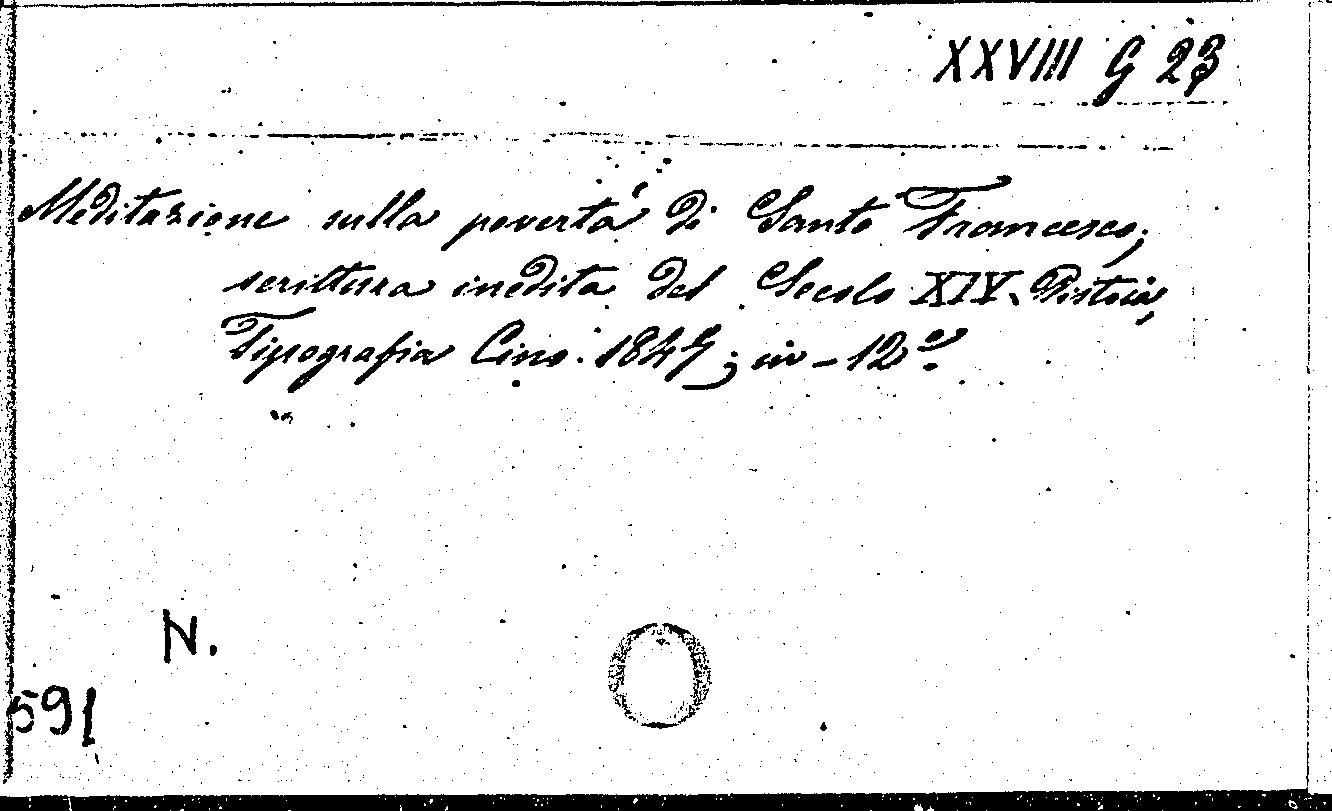 XXVIII G 23
Meditazione sulla povertá di Santo Francesco;
scrittura inedita del Secolo XIV. Pistoia,
Tipografia Cino. 1847; in-12º.
N.
591